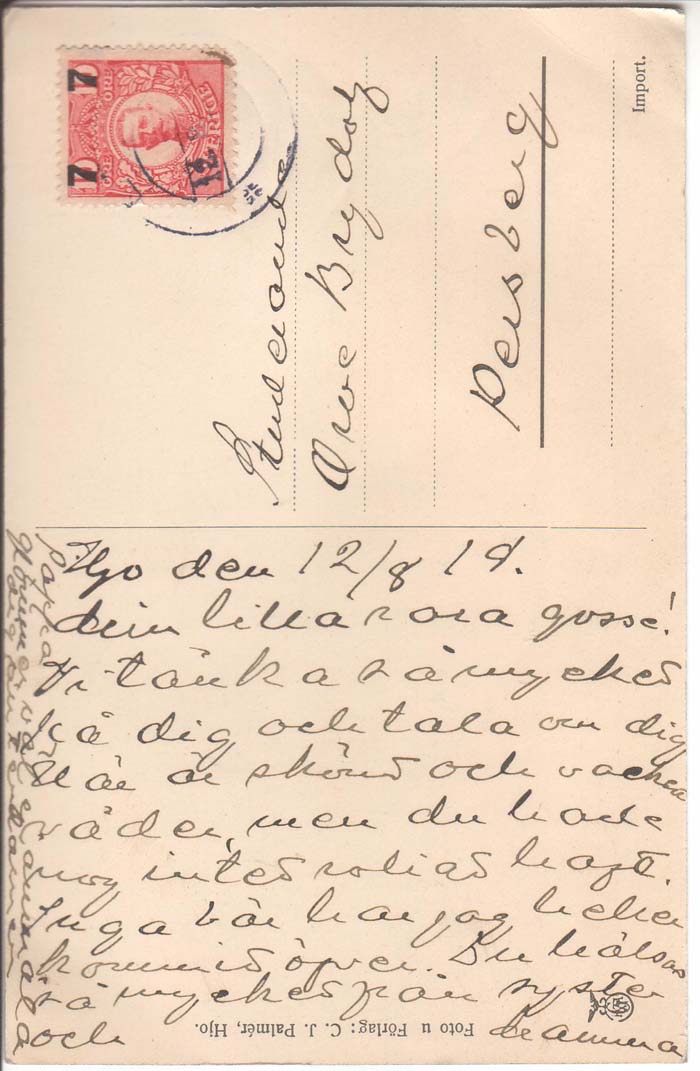 7 7
ÖRE ÖRE
SVERIGE
12
Studerande
Owe Brydolf
Persberg
Import.
Hjo den 12/8 19.
Min lilla rara gosse!
Vi tänka så mycket
på dig och tala om dig
Här är skönt och vackert
väder, men du hade
nog inte roligt haft.
Inga bär har jag heller
kommit öfver. Du hälsas
så mycket från syster
och mamma
Foto u Förlag: C. J. Palmér, Hjo.
pappa